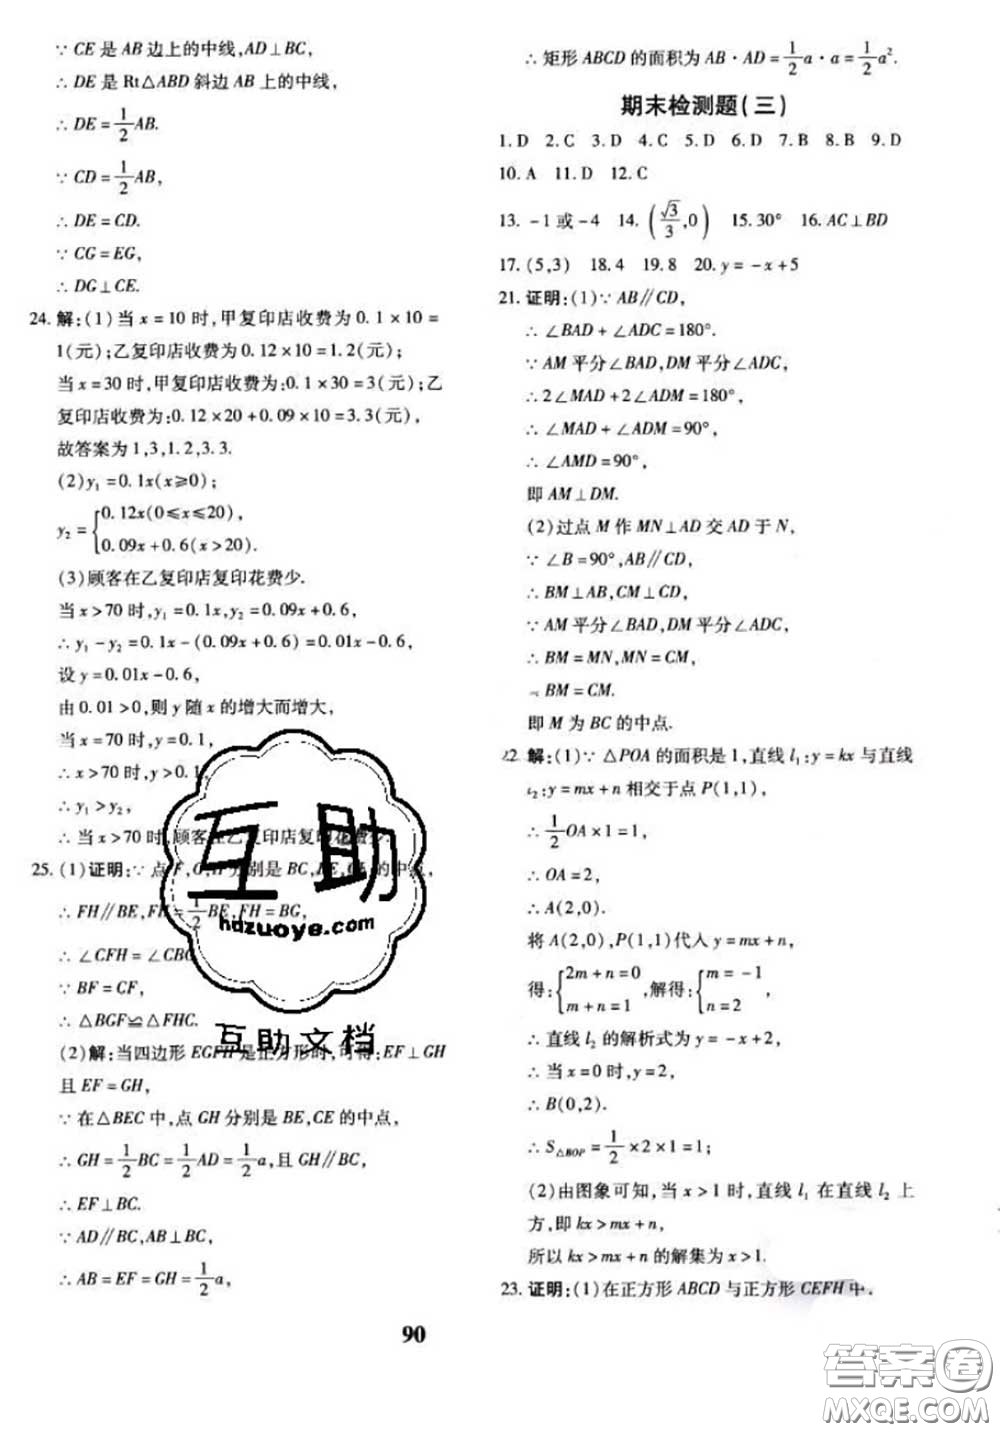 ∵ CE 是 AB 边上的中线,AD⊥BC,
∴ DE 是 Rt△ABD 斜边 AB 上的中线,
∴ DE = 1/2 AB.
∵ CD = 1/2 AB,
∴ DE = CD.
∵ CG = EG,
∴ DG⊥CE.
24. 解:(1)当 x = 10 时,甲复印店收费为 0.1×10 =
1(元);乙复印店收费为 0.12×10 = 1.2(元);
当 x = 30 时,甲复印店收费为:0.1×30 = 3(元);乙
复印店收费为:0.12×20 + 0.09×10 = 3.3(元),
故答案为 1,3,1.2,3.3.
(2)y₁ = 0.1x(x≥0);
y₂ = {0.12x(0≤x≤20),
0.09x + 0.6(x>20).
(3)顾客在乙复印店复印花费少.
当 x>70 时,y₁ = 0.1x,y₂ = 0.09x + 0.6,
∴ y₁ - y₂ = 0.1x - (0.09x + 0.6) = 0.01x - 0.6,
设 y = 0.01x - 0.6,
由 0.01>0,则 y 随 x 的增大而增大,
当 x = 70 时,y = 0.1,
∴ x>70 时,y>0.1,
∴ y₁>y₂,
∴ 当 x>70 时,顾客在乙复印店复印花费少.
25. (1)证明:∵ 点 F,G,H 分别是 BC,BE,CE 的中点,
∴ FH∥BE,FH = 1/2 BE,FH = BG,
∴ ∠CFH = ∠CBG
∵ BF = CF,
∴ △BGF≌△FHC.
(2)解:当四边形 EGFH 是正方形时,可得:EF⊥GH
且 EF = GH,
∵ 在△BEC 中,点 GH 分别是 BE,CE 的中点,
∴ GH = 1/2 BC = 1/2 AD = 1/2 a,且 GH∥BC,
∴ EF⊥BC.
∵ AD∥BC,AB⊥BC,
∴ AB = EF = GH = 1/2 a,
∴ 矩形 ABCD 的面积为 AB·AD = 1/2 a·a = 1/2 a².
期末检测题(三)
1. D 2. C 3. D 4. C 5. D 6. D 7. B 8. B 9. D
10. A 11. D 12. C
13. -1 或 -4 14. (√3/3,0) 15. 30° 16. AC⊥BD
17. (5,3) 18. 4 19. 8 20. y = -x + 5
21. 证明:(1)∵ AB∥CD,
∴ ∠BAD + ∠ADC = 180°.
∵ AM 平分∠BAD,DM 平分∠ADC,
∴ 2∠MAD + 2∠ADM = 180°,
∴ ∠MAD + ∠ADM = 90°,
∴ ∠AMD = 90°,
即 AM⊥DM.
(2)过点 M 作 MN⊥AD 交 AD 于 N,
∵ ∠B = 90°,AB∥CD,
∴ BM⊥AB,CM⊥CD,
∵ AM 平分∠BAD,DM 平分∠ADC,
∴ BM = MN,MN = CM,
BM = CM.
即 M 为 BC 的中点.
22. 解:(1)∵ △POA 的面积是 1,直线 l₁:y = kx 与直线
l₂:y = mx + n 相交于点 P(1,1),
∴ 1/2 OA×1 = 1,
∴ OA = 2,
∴ A(2,0).
将 A(2,0),P(1,1)代入 y = mx + n,
得:{2m + n = 0
m + n = 1,解得:{m = -1
n = 2,
∴ 直线 l₂ 的解析式为 y = -x + 2,
∴ 当 x = 0 时,y = 2,
∴ B(0,2).
∴ S△BOP = 1/2×2×1 = 1;
(2)由图象可知,当 x>1 时,直线 l₁ 在直线 l₂ 上
方,即 kx>mx + n,
所以 kx>mx + n 的解集为 x>1.
23. 证明:(1)在正方形 ABCD 与正方形 CEFH 中,
90
互助
hdzuoye.com
互助文档
答案卷
MXQE.COM